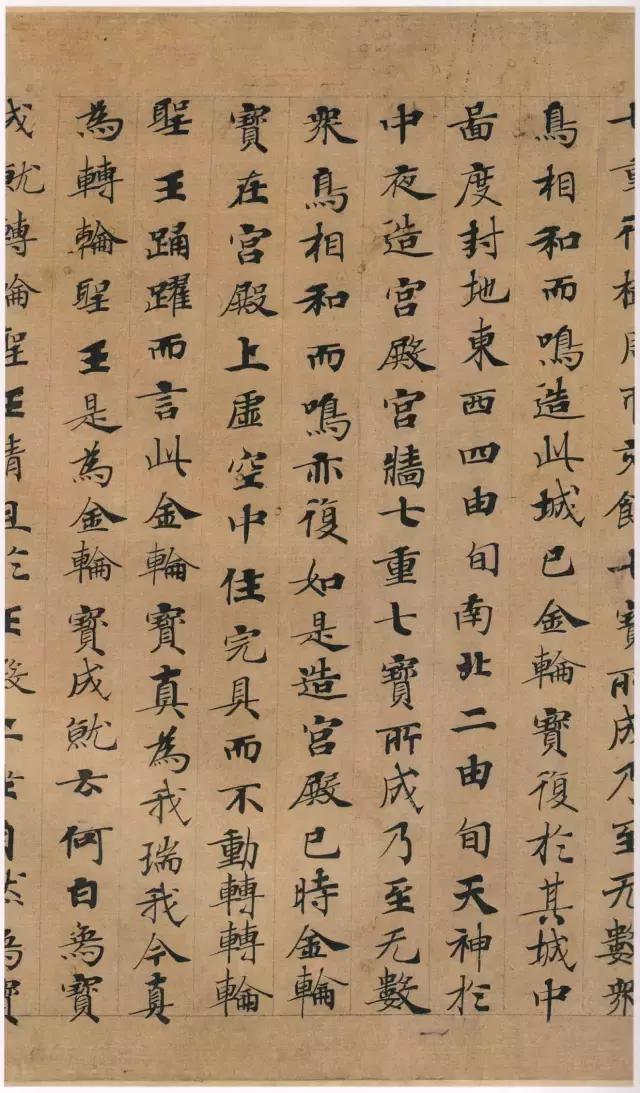 七重行樹周帀交飾七寶所成乃至无數眾
鳥相和而鳴造此城已金輪寶復於其城中
啚度封地東西四由旬南北二由旬天神於
中夜造宮殿宮牆七重七寶所成乃至无數
眾鳥相和而鳴亦復如是造宮殿已時金輪
寶在宮殿上虛空中住完具而不動轉轉輪
聖王踊躍而言此金輪寶真為我瑞我今真
為轉輪聖王是為金輪寶成就云何白象寶
成就轉輪聖王清旦於正殿上坐自然象寶